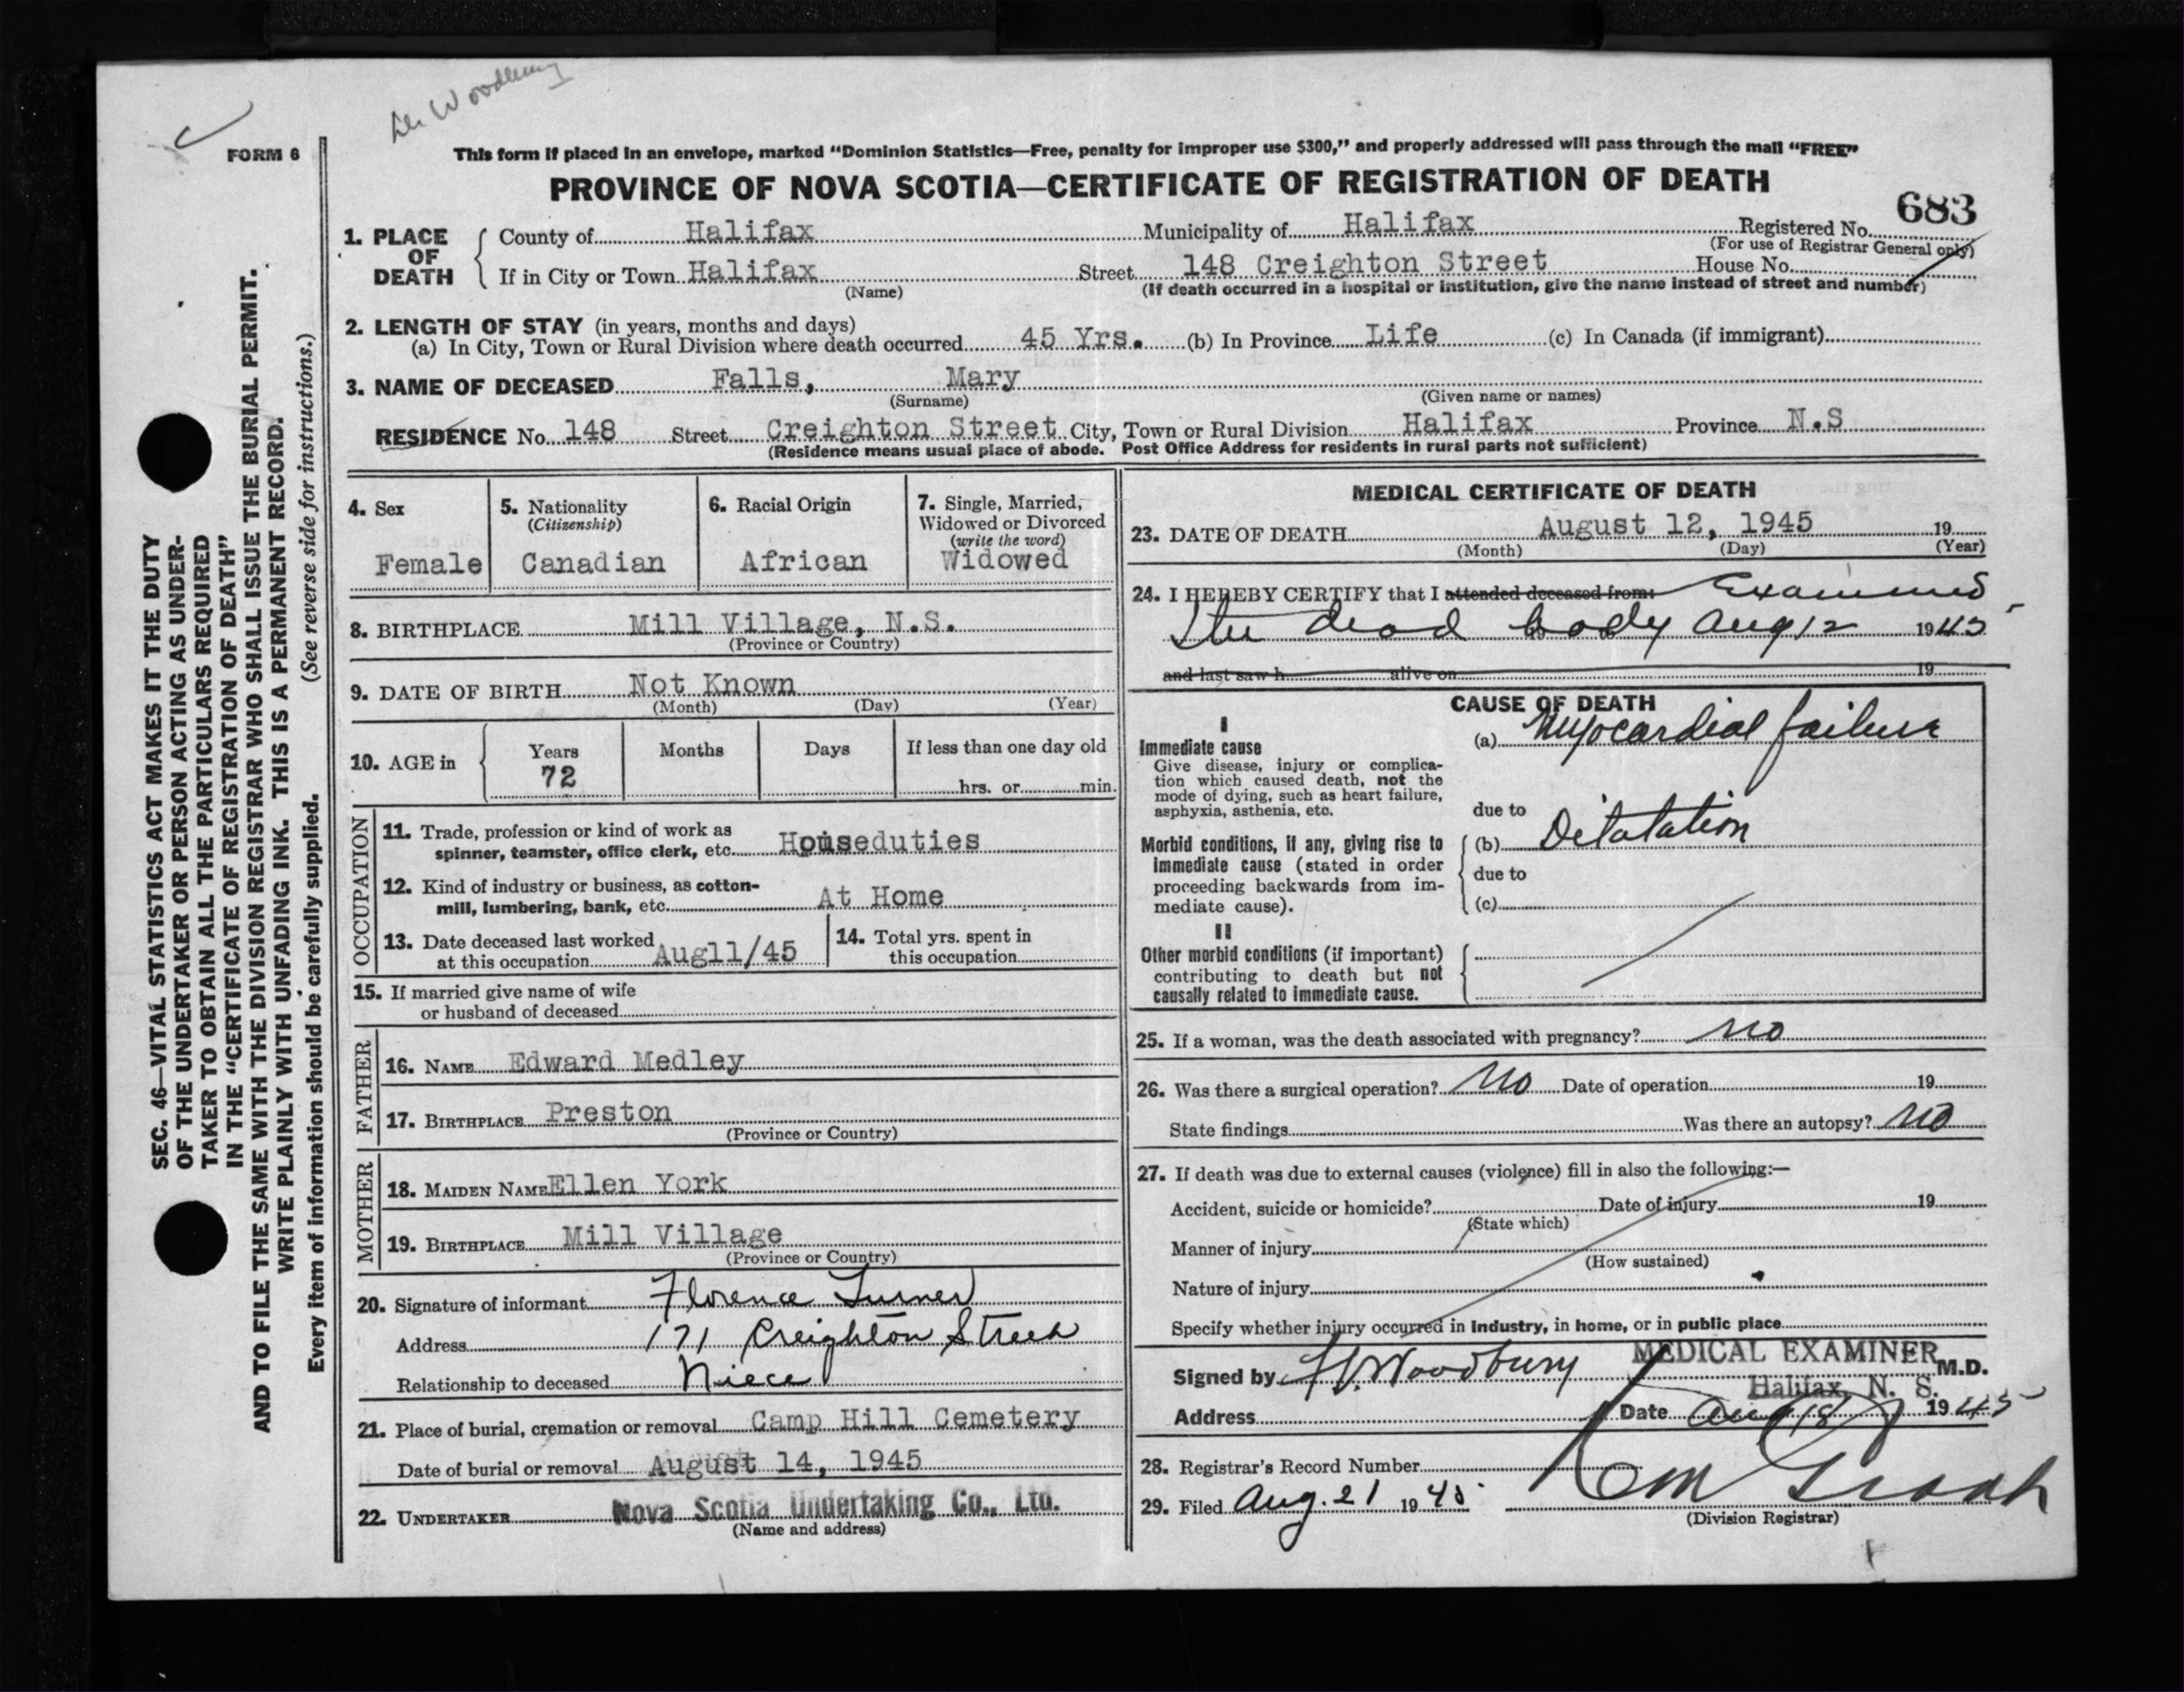 Dr. Woodbury
FORM 6
This form if placed in an envelope, marked “Dominion Statistics—Free, penalty for improper use $300,” and properly addressed will pass through the mail “FREE”
PROVINCE OF NOVA SCOTIA—CERTIFICATE OF REGISTRATION OF DEATH
683
1. PLACE OF DEATH
County of Halifax Municipality of Halifax Registered No.
(For use of Registrar General only)
If in City or Town Halifax Street 148 Creighton Street House No.
(Name) (If death occurred in a hospital or institution, give the name instead of street and number)
2. LENGTH OF STAY (in years, months and days)
(a) In City, Town or Rural Division where death occurred 45 Yrs. (b) In Province Life (c) In Canada (if immigrant)
3. NAME OF DECEASED Falls, Mary
(Surname) (Given name or names)
RESIDENCE No. 148 Street Creighton Street City, Town or Rural Division Halifax Province N.S
(Residence means usual place of abode. Post Office Address for residents in rural parts not sufficient)
SEC. 46—VITAL STATISTICS ACT MAKES IT THE DUTY
OF THE UNDERTAKER OR PERSON ACTING AS UNDER-
TAKER TO OBTAIN ALL THE PARTICULARS REQUIRED
IN THE “CERTIFICATE OF REGISTRATION OF DEATH”
AND TO FILE THE SAME WITH THE DIVISION REGISTRAR WHO SHALL ISSUE THE BURIAL PERMIT.
WRITE PLAINLY WITH UNFADING INK. THIS IS A PERMANENT RECORD.
Every item of information should be carefully supplied. (See reverse side for instructions.)
4. Sex
Female
5. Nationality
(Citizenship)
Canadian
6. Racial Origin
African
7. Single, Married,
Widowed or Divorced
(write the word)
Widowed
8. BIRTHPLACE Mill Village, N.S.
(Province or Country)
9. DATE OF BIRTH Not Known
(Month) (Day) (Year)
10. AGE in
Years Months Days If less than one day old
72 hrs. or min.
OCCUPATION
11. Trade, profession or kind of work as
spinner, teamster, office clerk, etc. Houseduties
12. Kind of industry or business, as cotton-
mill, lumbering, bank, etc. At Home
13. Date deceased last worked
at this occupation Aug11/45
14. Total yrs. spent in
this occupation
15. If married give name of wife
or husband of deceased
FATHER
16. NAME Edward Medley
17. BIRTHPLACE Preston
(Province or Country)
MOTHER
18. MAIDEN NAME Ellen York
19. BIRTHPLACE Mill Village
(Province or Country)
20. Signature of informant Florence Turner
Address 171 Creighton Street
Relationship to deceased Niece
21. Place of burial, cremation or removal Camp Hill Cemetery
Date of burial or removal August 14, 1945
22. UNDERTAKER Nova Scotia Undertaking Co., Ltd.
(Name and address)
MEDICAL CERTIFICATE OF DEATH
23. DATE OF DEATH August 12, 1945 19
(Month) (Day) (Year)
24. I HEREBY CERTIFY that I attended deceased from: Examined
the dead body Aug 12 1945
and last saw h alive on 19
CAUSE OF DEATH
I
Immediate cause
Give disease, injury or complica-
tion which caused death, not the
mode of dying, such as heart failure,
asphyxia, asthenia, etc.
(a) Myocardial failure
due to
Morbid conditions, if any, giving rise to
immediate cause (stated in order
proceeding backwards from im-
mediate cause).
(b) Dilatation
due to
(c)
II
Other morbid conditions (if important)
contributing to death but not
causally related to immediate cause.
25. If a woman, was the death associated with pregnancy? no
26. Was there a surgical operation? No Date of operation 19
State findings Was there an autopsy? No
27. If death was due to external causes (violence) fill in also the following:—
Accident, suicide or homicide? Date of injury 19
(State which)
Manner of injury
(How sustained)
Nature of injury
Specify whether injury occurred in industry, in home, or in public place
MEDICAL EXAMINER
Signed by Woodbury M.D.
Halifax, N. S.
Address Date Aug 18 1945
28. Registrar's Record Number
29. Filed Aug. 21 1945
(Division Registrar)